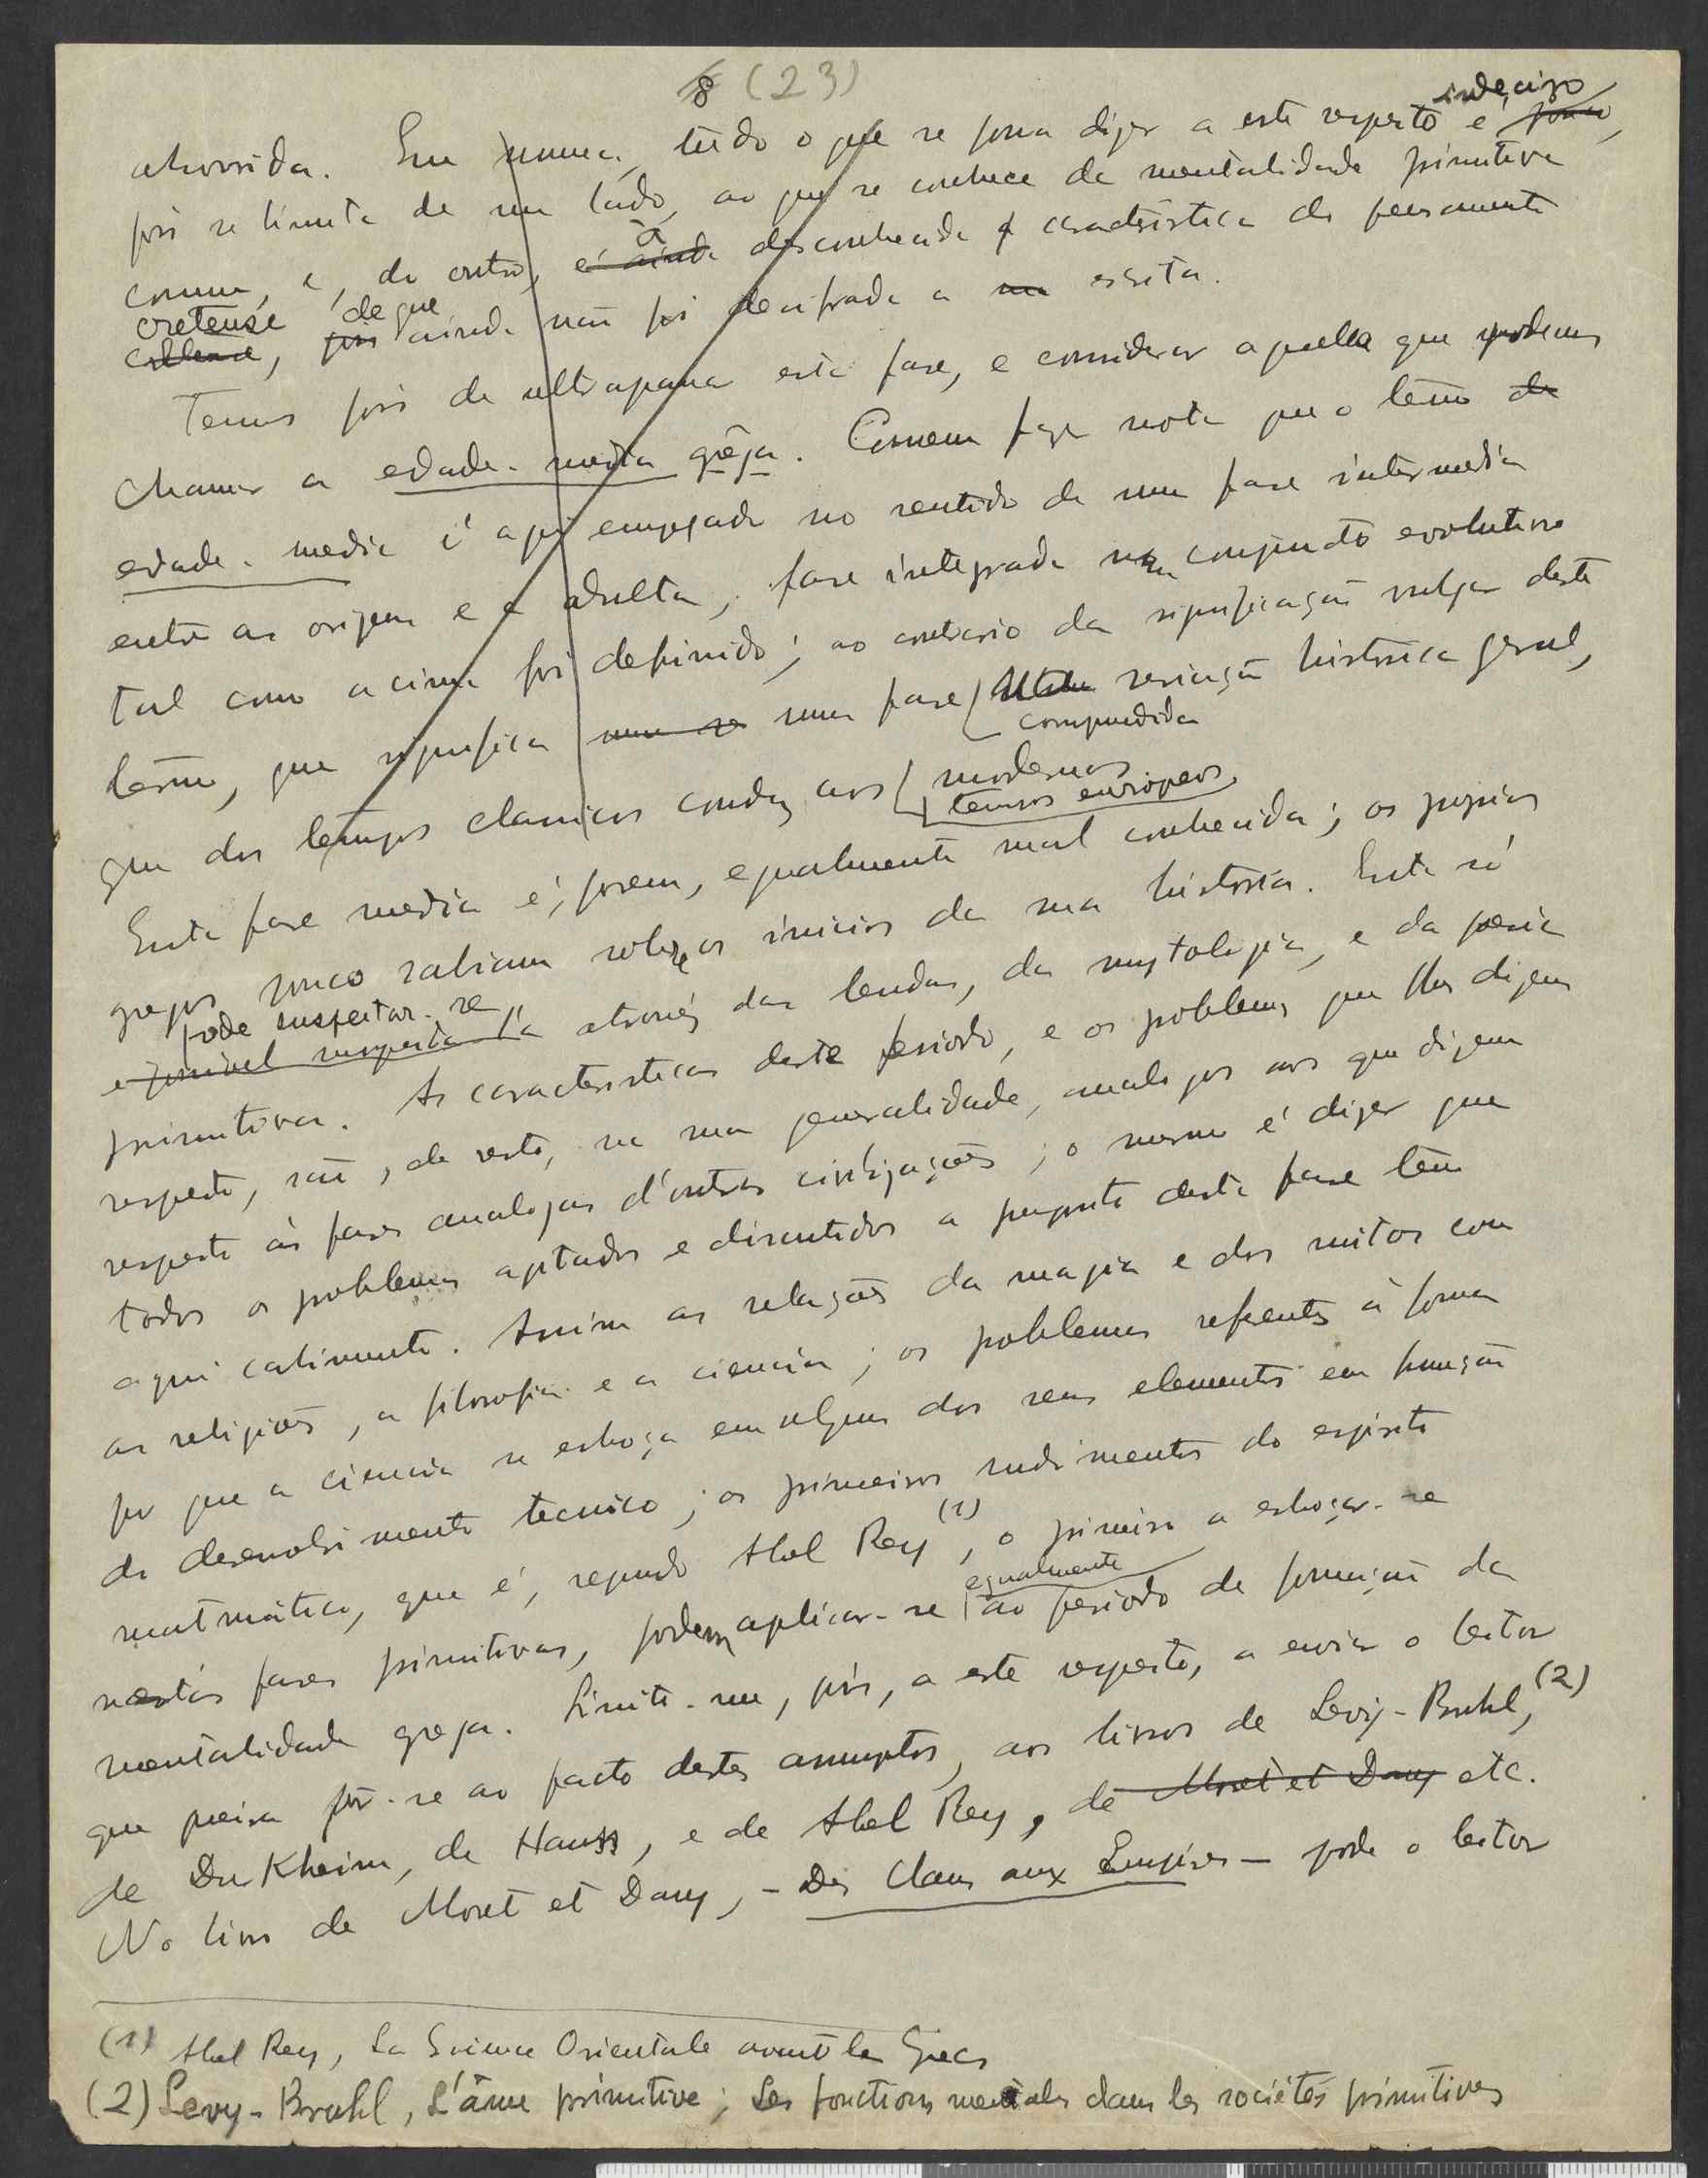 8 (23)
absorvida. Em suma, tudo o que se possa dizer a este respeito é indeciso pouco,
pois se limita de um lado, ao que se conhece da mentalidade primitiva
comum, e, de outro, é ainda a desconhecida característica do pensamento
cretense, de que pois ainda não foi decifrada a sua escrita.
Temos pois de ultrapassar esta fase, e considerar aquella que podemos
chamar a edade-media grêga. Convem fazer notar que o têrmo de
edade-media é aqui empregado no sentido de uma fase intermedia
entre as origens e a adulta, fase integrada num conjuncto evolutivo
tal como acima foi definido; ao contrario da significação vulgar deste
têrmo, que significa uma fase comprendida seriação historica geral,
que dos tempos classicos conduz aos tempos modernos europeos.
Esta fase media é, porem, egualmente mal conhecida; os proprios
gregos pouco sabiam sobre os inicios da sua historia. Esta só
pode suspeitar-se é possivel suspeita-la através das lendas, da mytologia, e da poesia
primitiva. As caracteristicas deste periodo, e os problemas que lhes dizem
respeito, são, de resto, na sua generalidade, analogos aos que dizem
respeito às fases analogas d'outras civilizações; o mesmo é dizer que
todos os problemas agitados e discutidos a proposito desta fase têm
aqui cabimento. Assim as relações da magia e dos mitos com
as religiões, a filosofia e a ciencia; os problemas referentes à forma
por que a ciencia se esboça em alguns dos seus elementos em função
do desenvolvimento tecnico; os primeiros rudimentos do espirito
matmático, que é, segundo Abel Rey (1), o primeiro a esboçar-se
nestas fases primitivas, podem aplicar-se egualmente ao periodo de formação da
mentalidade grega. Limito-me, pois, a este respeito, a enviar o leitor
que queira pôr-se ao facto destes assumptos, aos livros de Levy-Bruhl, (2)
de Durkheim, de Hauss, e de Abel Rey, de Moret et Davy etc.
No livro de Moret et Davy, - Des Clans aux Empires - pode o leitor
(1) Abel Rey, La Science Orientale avant les Grecs
(2) Levy-Bruhl, L'âme primitive; Les fonctions mentales dans les sociétés primitives